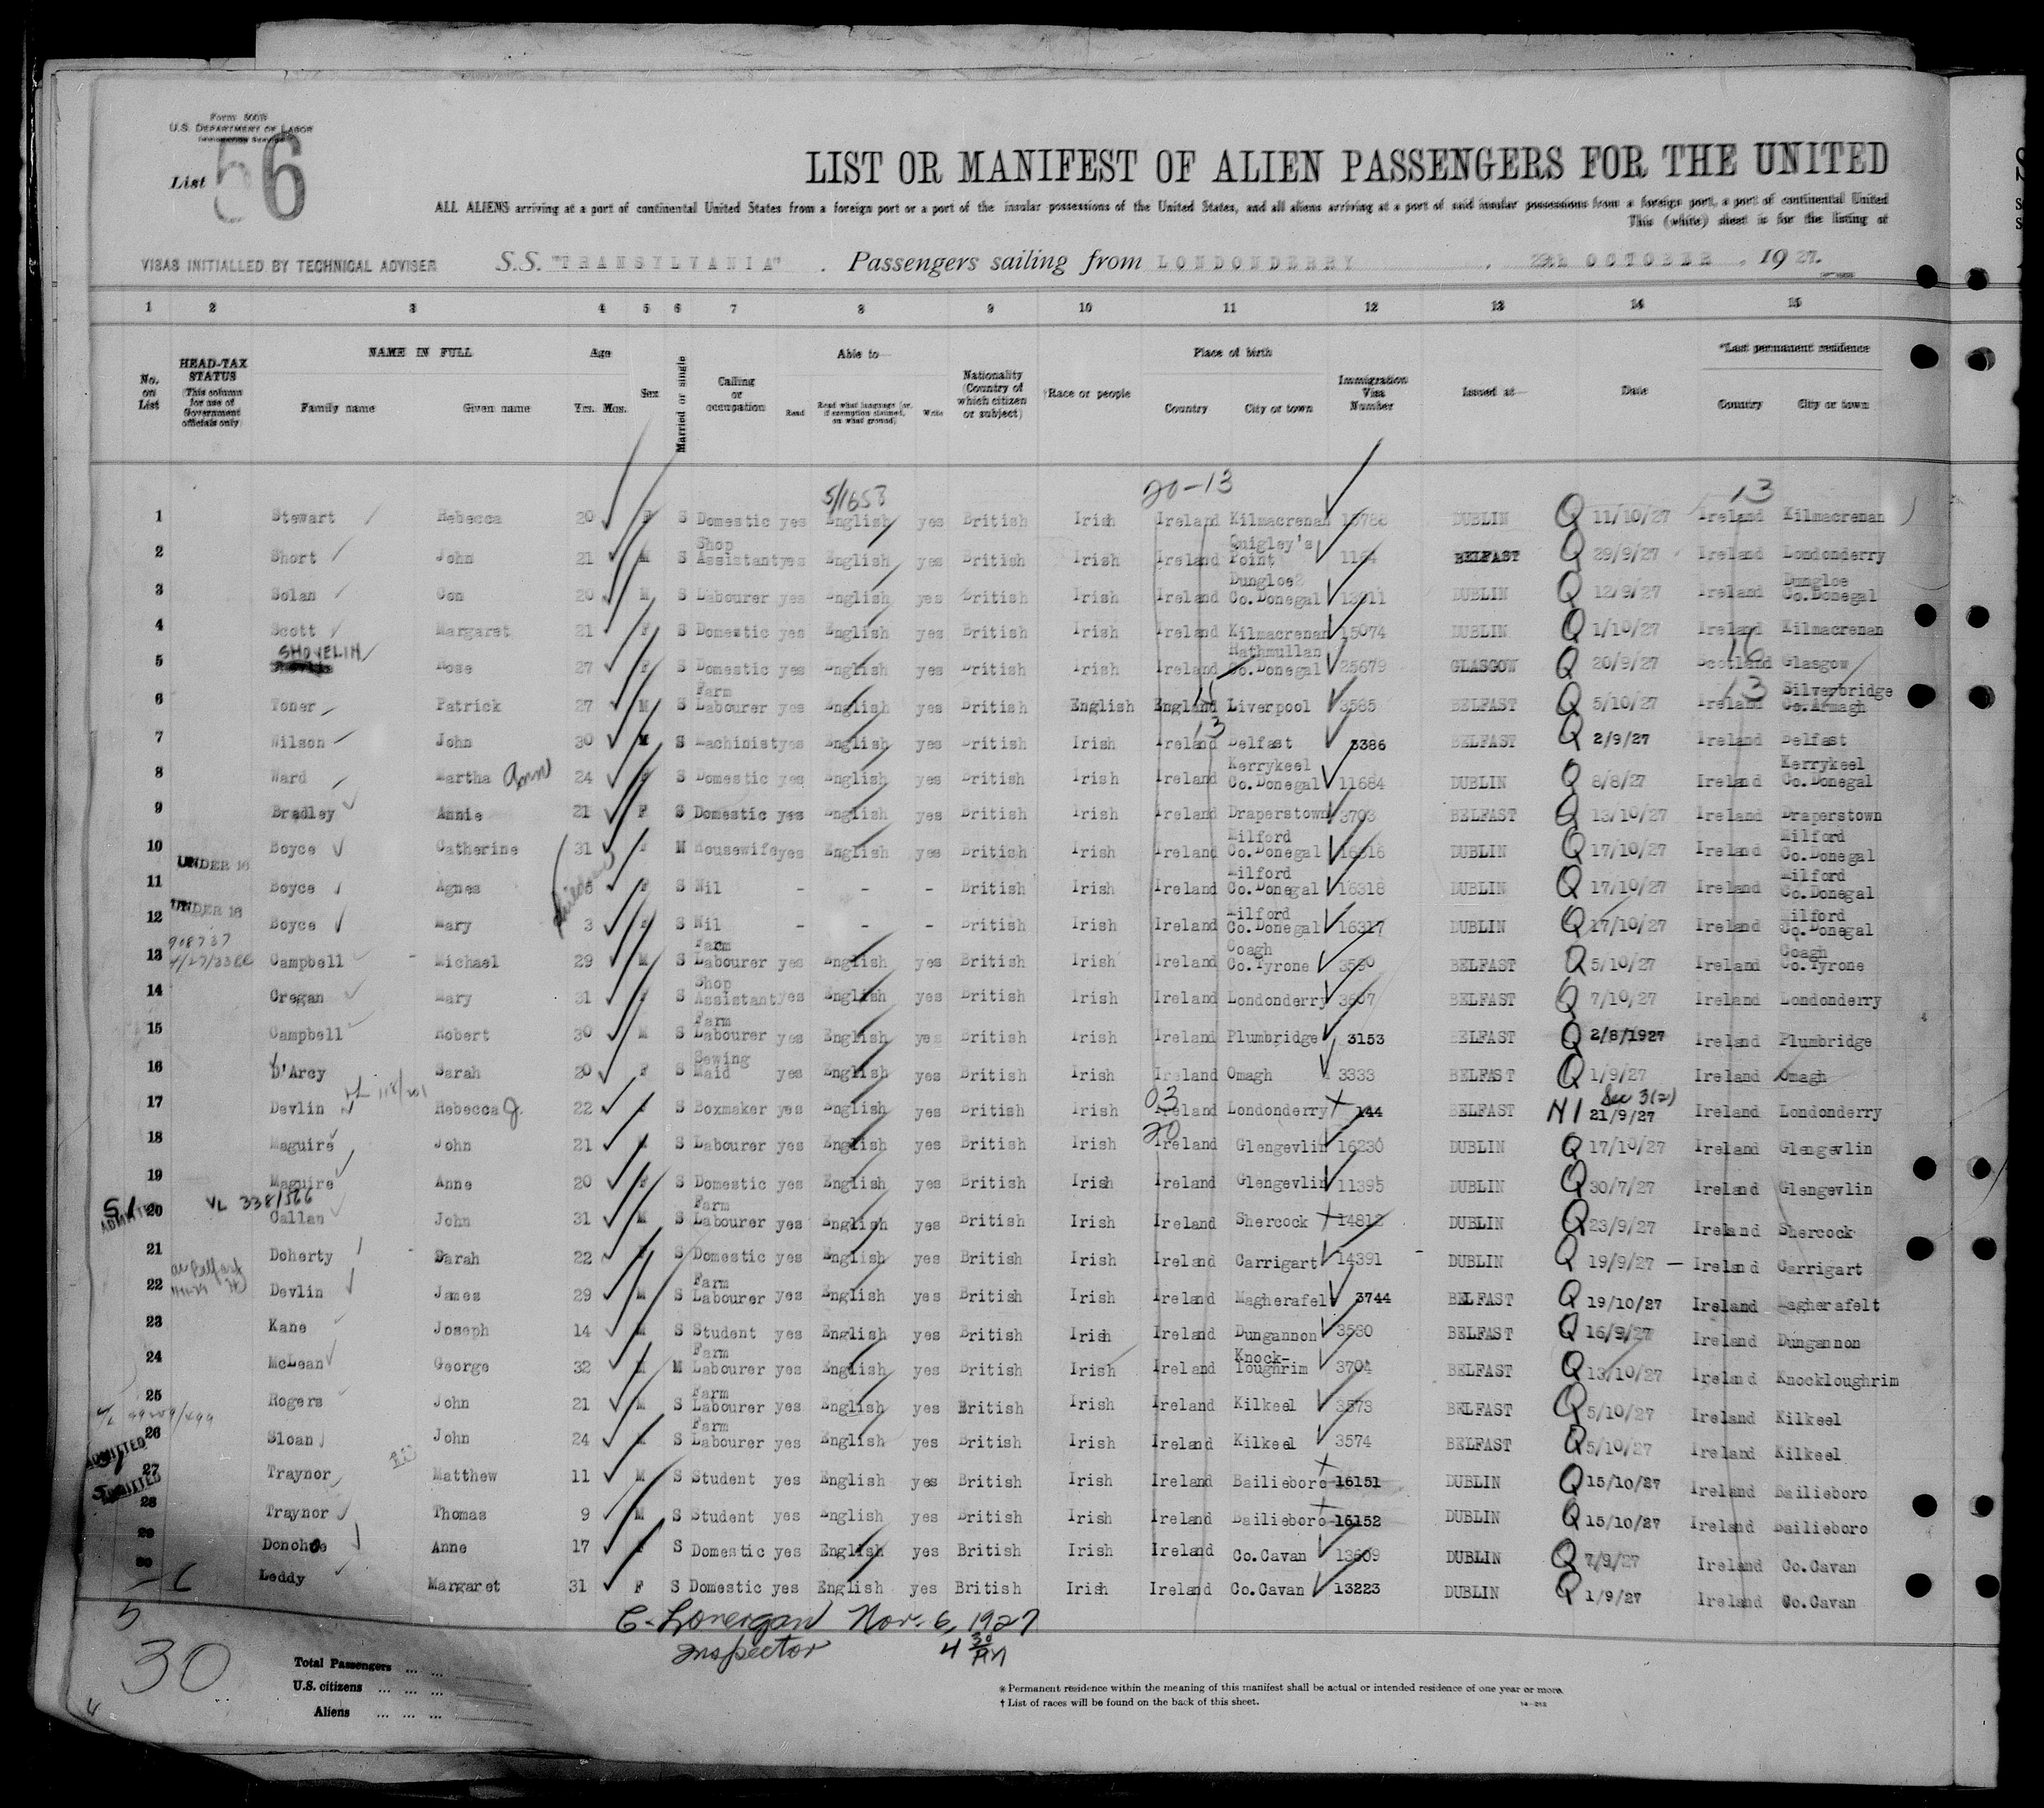 Form 500B
U.S. DEPARTMENT OF LABOR
Immigration Service
List 56
LIST OR MANIFEST OF ALIEN PASSENGERS FOR THE UNITED
ALL ALIENS arriving at a port of continental United States from a foreign port or a port of the insular possessions of the United States, and all aliens arriving at a port of said insular possessions from a foreign port, a port of continental United
This (white) sheet is for the listing of
VISAS INITIALLED BY TECHNICAL ADVISER S.S. "TRANSYLVANIA" . Passengers sailing from LONDONDERRY , OCTOBER , 1927.
1 2 3 4 5 6 7 8 9 10 11 12 13 14 15
No. on List
HEAD-TAX STATUS
(This column for use of Government officials only)
NAME IN FULL
Family name Given name
Age
Yrs. Mos.
Sex
Married or single
Calling or occupation
Able to—
Read Read what language [or, if exemption claimed, on what ground] Write
Nationality (Country of which citizen or subject)
†Race or people
Place of birth
Country City or town
Immigration Visa Number
Issued at—
Date
*Last permanent residence
Country City or town
5/1653 20-13 13
1 Stewart Rebecca 20 F S Domestic yes English yes British Irish Ireland Kilmacrenan DUBLIN Q 11/10/27 Ireland Kilmacrenan
2 Short John 21 M S Shop Assistant yes English yes British Irish Ireland Quigley's Point BELFAST Q 29/9/27 Ireland Londonderry
3 Solan Con 20 M S Labourer yes English yes British Irish Ireland Dungloe Co.Donegal DUBLIN Q 12/9/27 Ireland Dungloe Co.Donegal
4 Scott Margaret 21 F S Domestic yes English yes British Irish Ireland Kilmacrenan 15074 DUBLIN Q 1/10/27 Ireland Kilmacrenan
5 SHOVELIN Rose 27 F S Domestic yes English yes British Irish Ireland Rathmullan Co.Donegal 25679 GLASGOW Q 20/9/27 16 Scotland Glasgow
6 Toner Patrick 27 M S Farm Labourer yes English yes British English England Liverpool 3585 BELFAST Q 5/10/27 13 Ireland Silverbridge Co.Armagh
7 Wilson John 30 M S Machinist yes English yes British Irish 13 Ireland Belfast 3386 BELFAST Q 2/9/27 Ireland Belfast
8 Ward Martha Ann 24 F S Domestic yes English yes British Irish Ireland Kerrykeel Co.Donegal 11684 DUBLIN Q 8/8/27 Ireland Kerrykeel Co.Donegal
9 Bradley Annie 21 F S Domestic yes English yes British Irish Ireland Draperstown 3703 BELFAST Q 13/10/27 Ireland Draperstown
10 Boyce Catherine 31 F M Housewife yes English yes British Irish Ireland Milford Co.Donegal 16316 DUBLIN Q 17/10/27 Ireland Milford Co.Donegal
11 UNDER 16 Boyce Agnes F S Nil - - - British Irish Ireland Milford Co.Donegal 16318 DUBLIN Q 17/10/27 Ireland Milford Co.Donegal
12 UNDER 16 Boyce Mary 3 F S Nil - - - British Irish Ireland Milford Co.Donegal 16317 DUBLIN Q 17/10/27 Ireland Milford Co.Donegal
13 Campbell Michael 29 M S Farm Labourer yes English yes British Irish Ireland Coagh Co.Tyrone 3590 BELFAST Q 5/10/27 Ireland Coagh Co.Tyrone
14 Cregan Mary 31 F S Shop Assistant yes English yes British Irish Ireland Londonderry BELFAST Q 7/10/27 Ireland Londonderry
15 Campbell Robert 30 M S Farm Labourer yes English yes British Irish Ireland Plumbridge 3153 BELFAST Q 2/8/1927 Ireland Plumbridge
16 D'Arcy Sarah 20 F S Sewing Maid yes English yes British Irish Ireland Omagh 3333 BELFAST Q 1/9/27 Ireland Omagh
17 Devlin Rebecca J. 22 F S Boxmaker yes English yes British Irish 03 Ireland Londonderry 144 BELFAST NI Sec 3(2) 21/9/27 Ireland Londonderry
18 Maguire John 21 M S Labourer yes English yes British Irish 20 Ireland Glengevlin 16230 DUBLIN Q 17/10/27 Ireland Glengevlin
19 Maguire Anne 20 F S Domestic yes English yes British Irish Ireland Glengevlin 11395 DUBLIN Q 30/7/27 Ireland Glengevlin
SI ADMITTED VL 338/566
20 Callan John 31 M S Farm Labourer yes English yes British Irish Ireland Shercock 14812 DUBLIN Q 23/9/27 Ireland Shercock
21 Doherty Sarah 22 F S Domestic yes English yes British Irish Ireland Carrigart 14391 DUBLIN Q 19/9/27 Ireland Carrigart
22 Devlin James 29 M S Farm Labourer yes English yes British Irish Ireland Magherafel 3744 BELFAST Q 19/10/27 Ireland Magherafelt
23 Kane Joseph 14 M S Student yes English yes British Irish Ireland Dungannon BELFAST Q 16/9/27 Ireland Dungannon
24 McLean George 32 M M Farm Labourer yes English yes British Irish Ireland Knock-loughrim 3704 BELFAST Q 13/10/27 Ireland Knockloughrim
25 Rogers John 21 M S Farm Labourer yes English yes British Irish Ireland Kilkeel 3573 BELFAST Q 5/10/27 Ireland Kilkeel
26 Sloan John 24 M S Farm Labourer yes English yes British Irish Ireland Kilkeel 3574 BELFAST Q 5/10/27 Ireland Kilkeel
ADMITTED
27 Traynor Matthew 11 M S Student yes English yes British Irish Ireland Bailieboro 16151 DUBLIN Q 15/10/27 Ireland Bailieboro
ADMITTED
28 Traynor Thomas 9 M S Student yes English yes British Irish Ireland Bailieboro 16152 DUBLIN Q 15/10/27 Ireland Bailieboro
29 Donohoe Anne 17 F S Domestic yes English yes British Irish Ireland Co.Cavan 13609 DUBLIN Q 7/9/27 Ireland Co.Cavan
30 Leddy Margaret 31 F S Domestic yes English yes British Irish Ireland Co.Cavan 13223 DUBLIN Q 1/9/27 Ireland Co.Cavan
C. Lonergan Nov. 6, 1927
Inspector 4 30 PM
5
30
Total Passengers ... ...
U.S. citizens ... ... ...
Aliens ... ... ...
* Permanent residence within the meaning of this manifest shall be actual or intended residence of one year or more.
† List of races will be found on the back of this sheet.